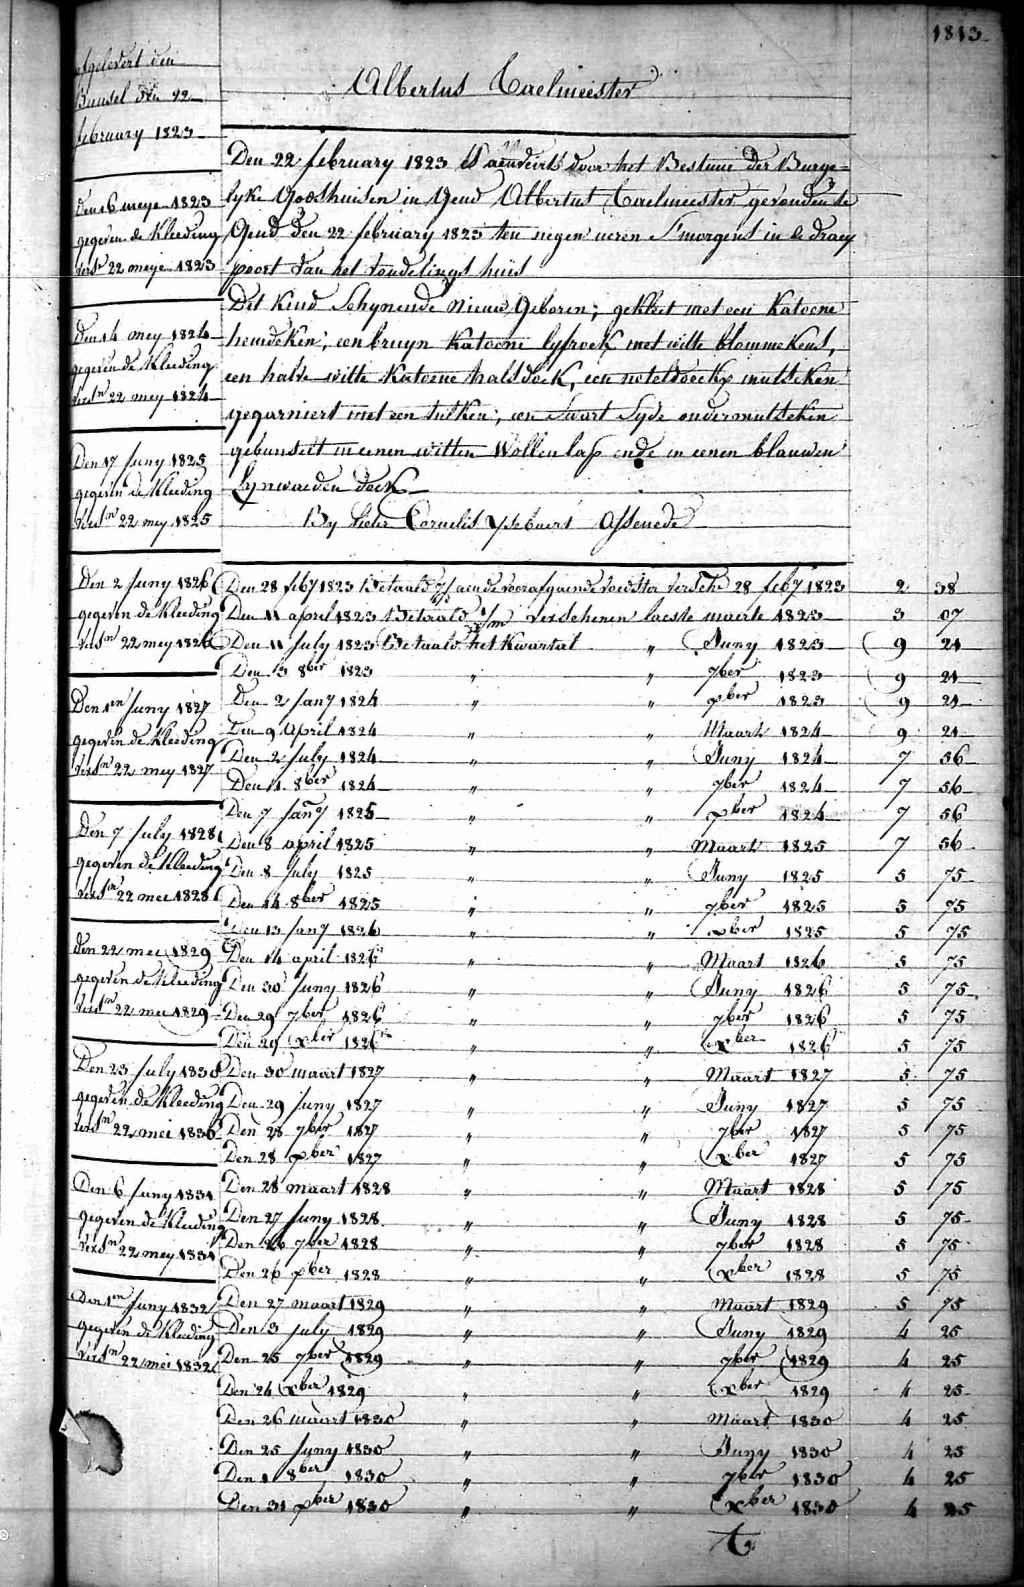 1813
Albertus Taelmeester
afgelevert den
Bunsel den 22
february 1823
Den 6 meye 1823
gegeven de Kleeding
versn 22 meye 1823
Den 14 mey 1824
gegeven de Kleeding
versn 22 mey 1824
Den 17 Juny 1825
gegeven de Kleeding
versn 22 mey 1825
Den 2 Juny 1826
gegeven de Kleeding
versn 22 mey 1826
Den 1en Juny 1827
gegeven de Kleeding
versn 22 mey 1827
Den 7 July 1828
gegeven de Kleeding
versn 22 mei 1828
Den 22 mei 1829
gegeven de Kleeding
versn 22 mei 1829
Den 23 July 1830
gegeven de Kleeding
versn 22 mei 1830
Den 6 Juny 1831
gegeven de Kleeding
versn 22 mey 1831
Den 1en Juny 1832
gegeven de Kleeding
versn 22 mei 1832
Den 22 february 1823 is aenveirt door het Bestuur der Burge=
lyke Godshuisen in Gend Albertus Taelmeester gevonden te
Gend den 22 february 1823 ten negen ueren S'morgens in de draey
poort van het vondelings huis
Dit Kind Schynende Nieuw Geboren; gekleet met een Katoene
hemdeken, een bruyn Katoene lyfrock met witte blommekens,
een halve witte Katoene halsdoek, een neteldoeckx mutseken
gegarniert met een tulken; een Swart Syde ondermutseken
gebunselt in eenen witten Wollen lap ende in eenen blauwen
Lynwaeden doek
By Pieter Cornelis Ysebaert Assenede
Den 28 feby 1823 Betaald aen de voorafgaende voedster versche 28 feby 1823 2 38
Den 11 april 1823 Betaald verschenen laeste maerte 1823 3 07
Den 11 July 1823 Betaald het Kwartal " Juny 1823 9 21
Den 13 8ber 1823 " " 7ber 1823 9 21
Den 2 Jany 1824 " " xber 1823 9 21
Den 9 April 1824 " " Maart 1824 9 21
Den 2 July 1824 " " Juny 1824 7 56
Den 1 8ber 1824 " " 7ber 1824 7 56
Den 7 Jany 1825 " " xber 1824 7 56
Den 8 april 1825 " " Maart 1825 7 56
Den 8 July 1825 " " Juny 1825 5 75
Den 14 8ber 1825 " " 7ber 1825 5 75
Den 13 Jany 1826 " " xber 1825 5 75
Den 14 april 1826 " " Maart 1826 5 75
Den 30 Juny 1826 " " Juny 1826 5 75
Den 29 7ber 1826 " " 7ber 1826 5 75
Den 29 xber 1826 " " xber 1826 5 75
Den 30 maart 1827 " " Maart 1827 5 75
Den 29 Juny 1827 " " Juny 1827 5 75
Den 28 7ber 1827 " " 7ber 1827 5 75
Den 28 xber 1827 " " xber 1827 5 75
Den 28 maart 1828 " " Maart 1828 5 75
Den 27 Juny 1828 " " Juny 1828 5 75
Den 26 7ber 1828 " " 7ber 1828 5 75
Den 26 xber 1828 " " xber 1828 5 75
Den 27 maart 1829 " " Maart 1829 5 75
Den 3 July 1829 " " Juny 1829 4 25
Den 25 7ber 1829 " " 7ber 1829 4 25
Den 24 xber 1829 " " xber 1829 4 25
Den 26 maart 1830 " " Maart 1830 4 25
Den 25 Juny 1830 " " Juny 1830 4 25
Den 1 8ber 1830 " " 7ber 1830 4 25
Den 31 xber 1830 " " xber 1830 4 25